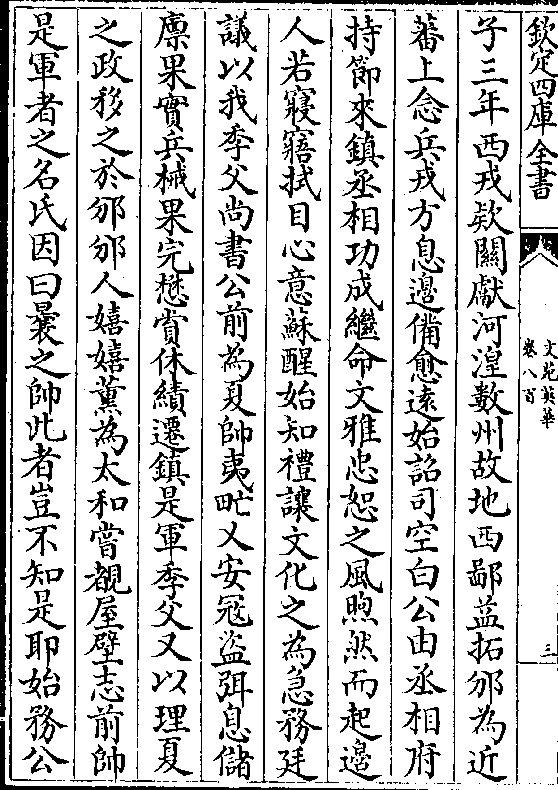 欽定四庫全書
文苑英華
卷八百
三
子三年西戎欵關獻河湟數州故地西鄙益拓邠為近
蕃上念兵戎方息邊備愈遠始詔司空白公由丞相府
持節來鎮丞相功成繼命文雅忠恕之風煦然而起邊
人若寢寤拭目心意蘇醒始知禮讓文化之為急務廷
議以我季父尚書公前為夏帥夷甿乂安冦盜弭息儲
廪果實兵械果完懋賞休績遷鎮是軍季父又以理夏
之政移之於邠邠人嬉嬉薰為太和嘗覩屋壁志前帥
是軍者之名氏因曰曩之帥此者豈不知是耶始務公